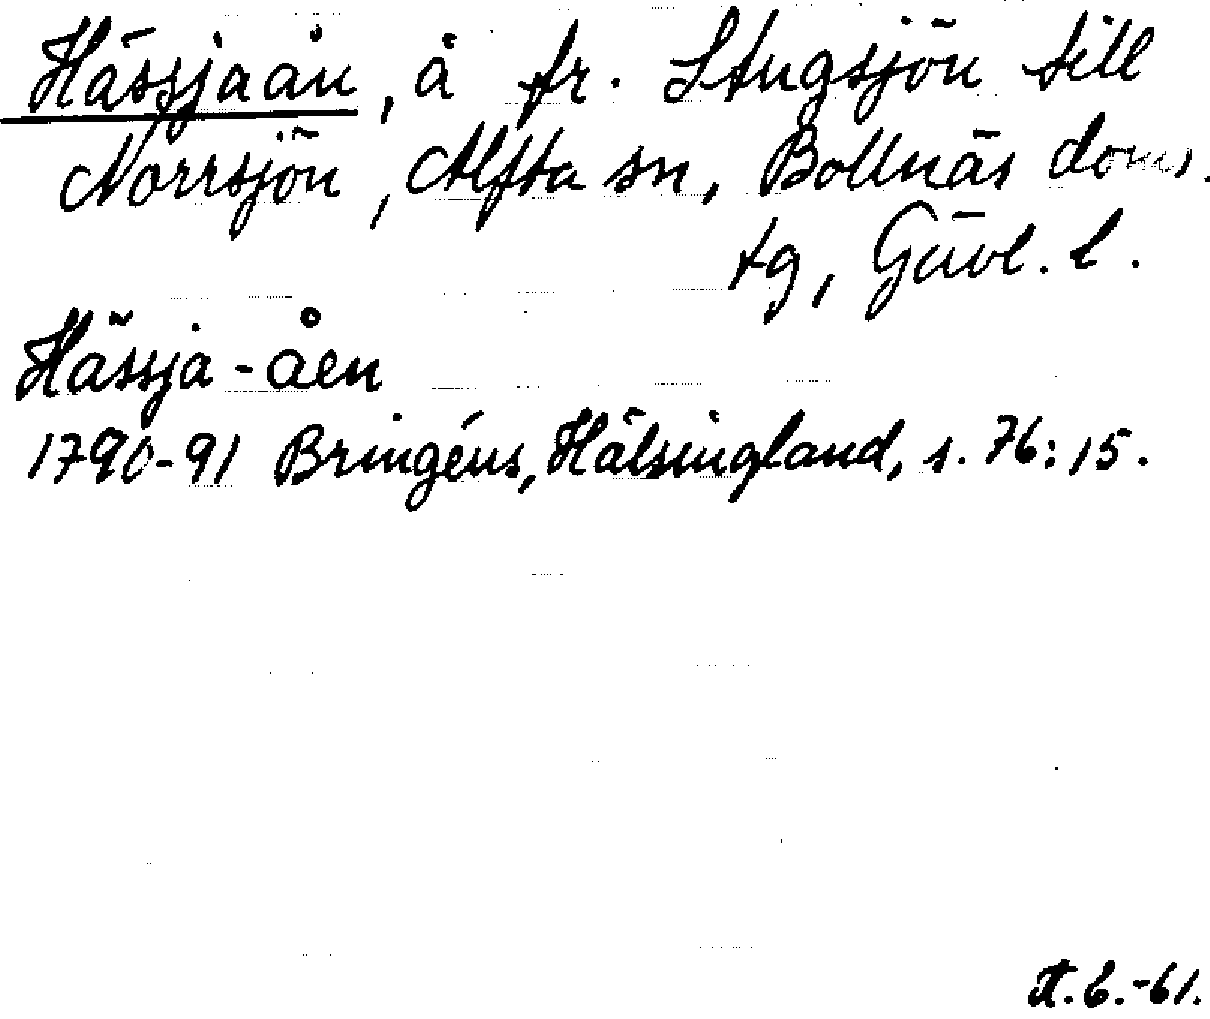 Hässjaån, å fr. Stugsjön till
Norrsjön, Alfta sn, Bollnäs doms.
tg, Gävl. l.
Hässja-åen
1790-91 Bringéus, Hälsingland, s. 76:15.
-61.